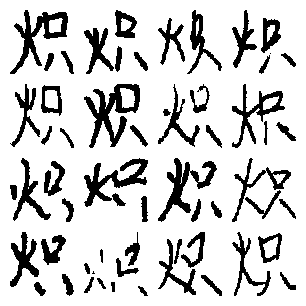 炽炽炽炽
炽炽炽炽
炽炽炽炽
炽炽炽炽